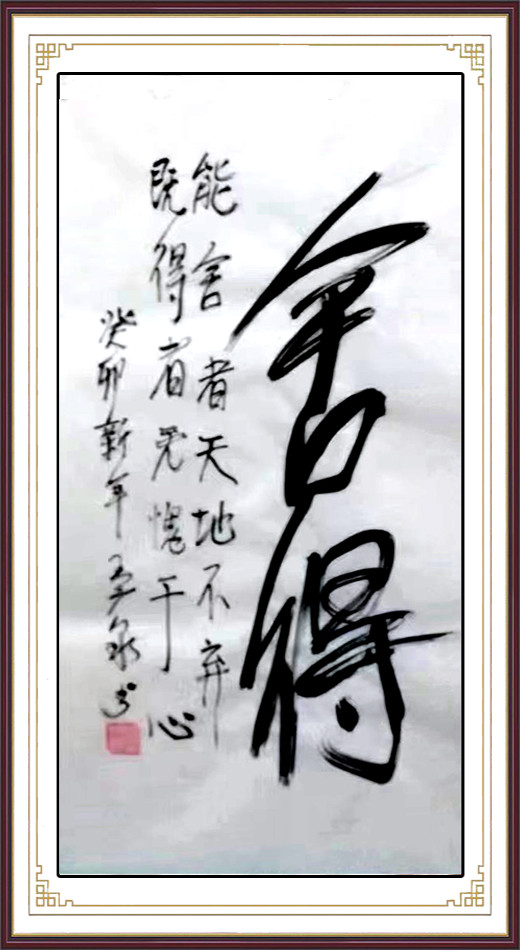 舍得
能舍者天地不弃
既得者无愧于心
癸卯新年 书